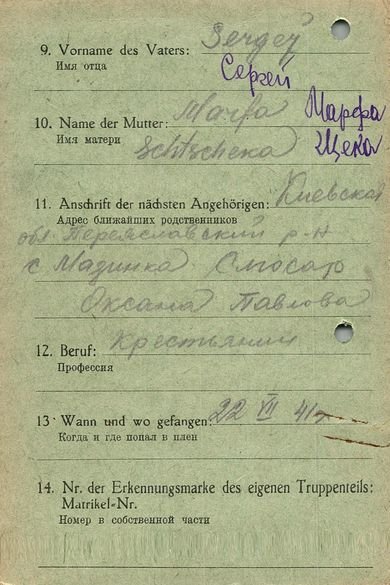 9. Vorname des Vaters: Sergej
Имя отца Сергей
10. Name der Mutter: Marfa Марфа
Имя матери Schtscheka Щека
11. Anschrift der nächsten Angehörigen: Киевская
Адрес ближайших родственников
обл. Переяславский р-н
с Мадинка Слюсар
Оксана Павлова
12. Beruf: Крестьянин
Профессия
13 Wann und wo gefangen: 22 VII 41г
Когда и где попал в плен
14. Nr. der Erkennungsmarke des eigenen Truppenteils:
Matrikel-Nr.
Номер в собственной части